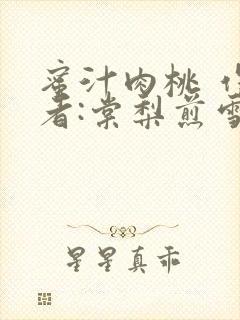 蜜汁肉桃 作
者:棠梨煎雪
星星真乖